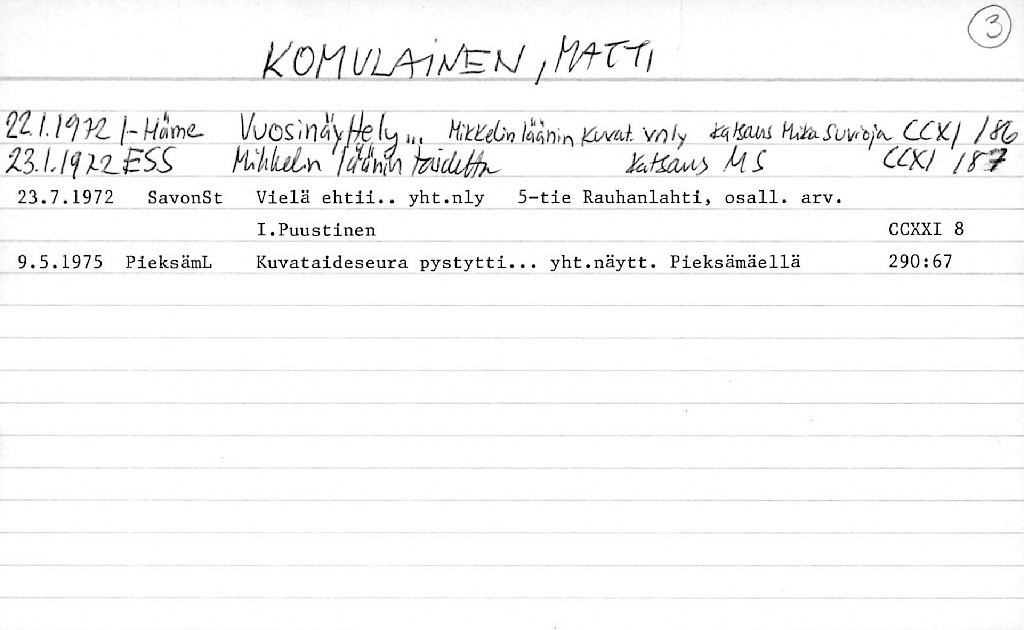 3
KOMULAINEN, MATTI
22.1.1972 I-Häme Vuosinäyttely... Mikkelin läänin kuvat. vnly katsaus Mika Suvioja CCXI /86
23.1.1972 ESS Mikkelin läänin taidetta katsaus MS CCXI /87
23.7.1972 SavonSt Vielä ehtii.. yht.nly 5-tie Rauhanlahti, osall. arv.
I.Puustinen CCXXI 8
9.5.1975 PieksämL Kuvataideseura pystytti... yht.näytt. Pieksämäellä 290:67